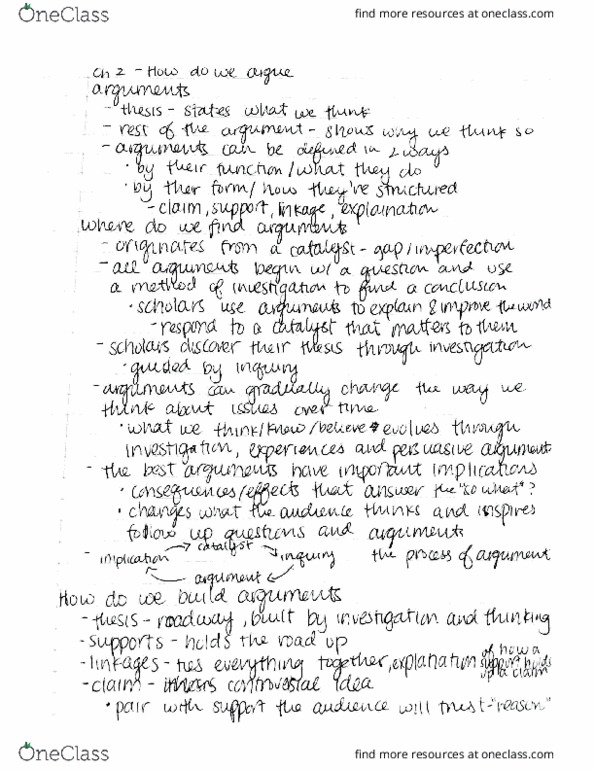 OneClass
find more resources at oneclass.com
Ch 2 - How do we argue
arguments
- thesis - states what we think
- rest of the argument - shows why we think so
- arguments can be defined in 2 ways
• by their function/what they do
• by their form/how they're strictured
- claim, support, linkage, explaination
Where do we find arguments
- originates from a catalyst - gap/imperfection
- all arguments begin w/ a question and use
a method of investigation to find a conclusion
• scholars use arguments to explain & improve the world
- respond to a catalyst that matters to them
- scholars discover their thesis through investigation
• guided by inquiry
- arguments can gradually change the way we
think about issues over time
• what we think/know/believe evolves through
investigation, experiences and persuasive argument
- the best arguments have important implications
• consequences/effects that answer the "so what"?
• changes what the audience thinks and inspires
follow up questions and arguments
- implication → catalyst → inquiry the process of argument
argument
How do we build arguments
- thesis - roadway, built by investigation and thinking
- supports - holds the road up
- linkages - ties everything together, explanation of how a support holds up a claim
- claim - controversial idea
• pair with support the audience will trust - "reason"
OneClass
find more resources at oneclass.com